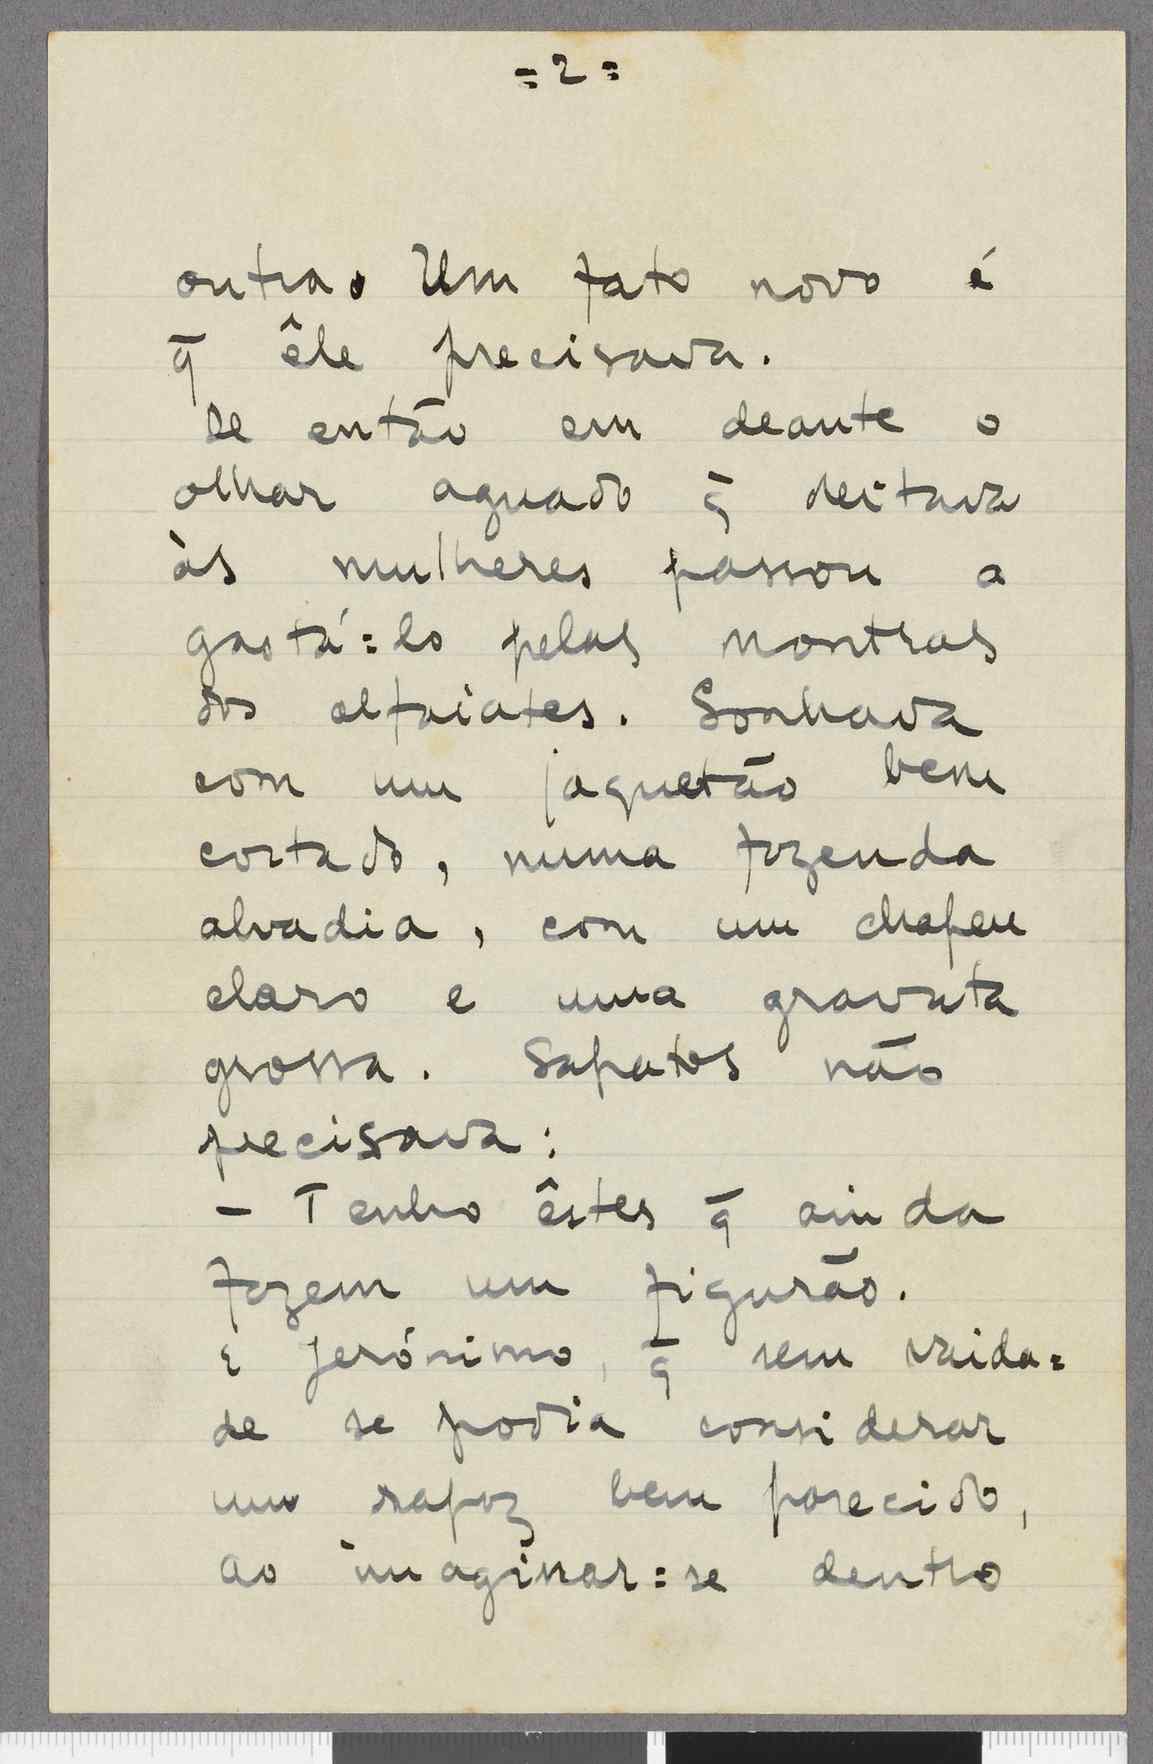 = 2 =
outra. Um fato novo é
q̄ êle precisava.
De então em deante o
olhar aguado q̄ deitava
às mulheres passou a
gastá=lo pelas montras
dos alfaiates. Sonhava
com um jaquetão bem
cortado, numa fazenda
alvadia, com um chapeu
claro e uma gravata
grossa. Sapatos não
precisava:
- Tenho êstes q̄ ainda
fazem um figurão.
E Jerónimo, q̄ sem vaida=
de se podia considerar
um rapaz bem parecido,
ao imaginar=se dentro